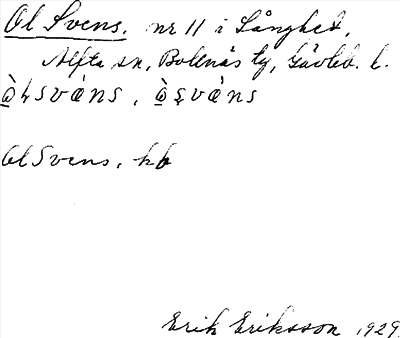 Ol Svens. nr 11 i Långhed,
Alfta sn, Bollnäs tg, Gävleb. l.
Ol Svens. hb
Erik Eriksson 1929.